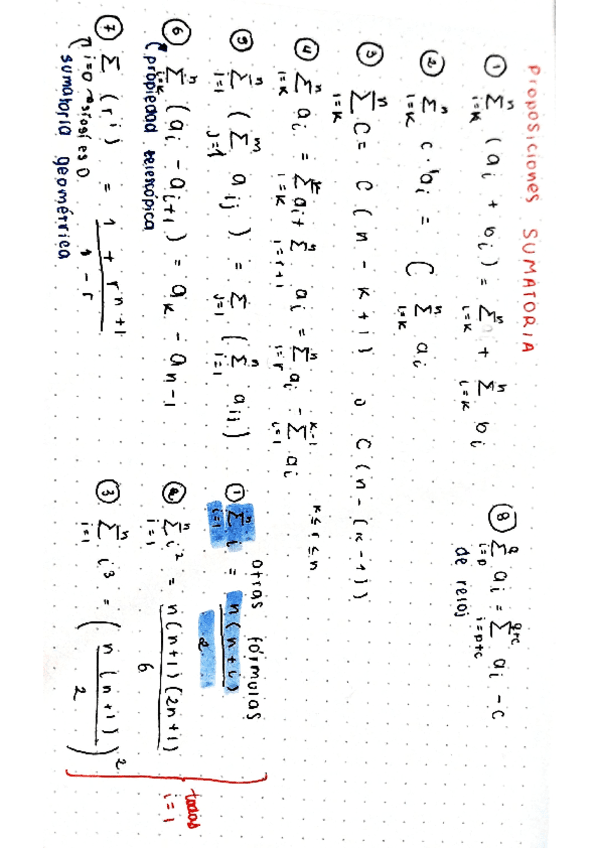 Proposiciones SUMATORIA
① n∑i=k (ai + bi) = n∑i=k ai + n∑i=k bi
② n∑i=k c·ai = C n∑i=k ai
③ n∑i=k C = C (n - k + 1) o C (n - (k-1))
④ n∑i=k ai = r∑i=k ai + n∑i=r+1 ai = n∑i=r ai - k-1∑i=1 ai
k ≤ r ≤ n
⑤ n∑i=1 (m∑j=1 aij) = ∑j=1 (n∑i=1 aij)
⑥ n∑i=k (ai - ai+1) = ak - an-1
propiedad telescópica
⑦ n∑i=0 (r^i) = 1 + r^n+1 / 1 - r
si es 0
sumatoria geométrica
⑧ q∑i=p ai = q+c∑i=p+c ai-c
de reloj
otras fórmulas
① n∑i=1 i = n(n+1) / 2
② n∑i=1 i² = n(n+1)(2n+1) / 6
③ n∑i=1 i³ = (n(n+1) / 2)²
todas
i = 1